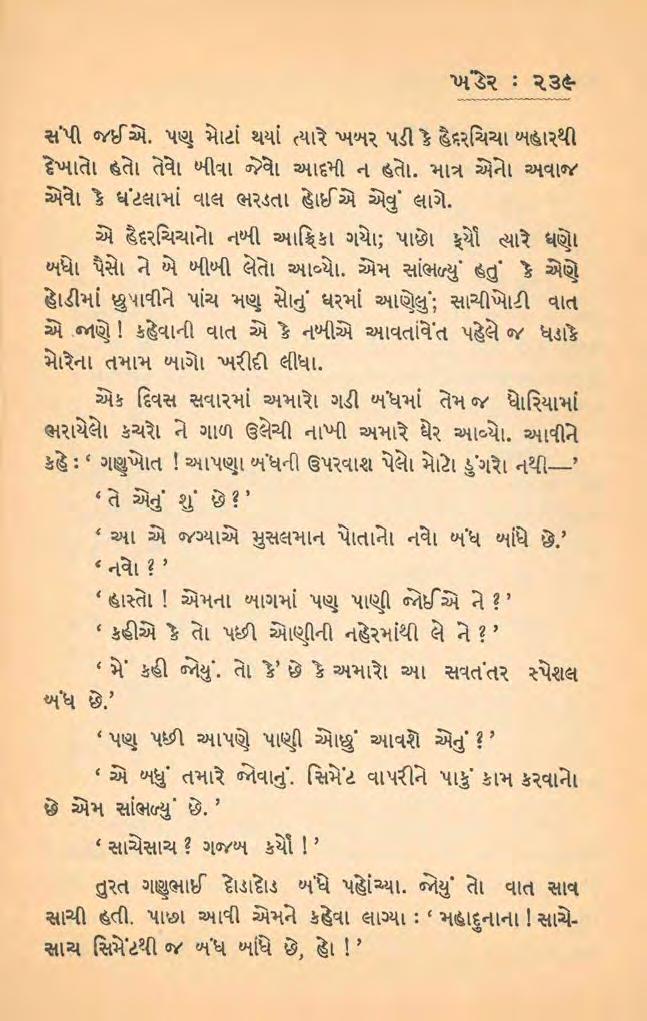 ખંડેર : ૨૩૯
સંપી જઈએ. પણ મોટાં થયાં ત્યારે ખબર પડી કે હૈદરચિચા બહારથી
દેખાતો હતો તેવો બીવા જેવો આદમી ન હતો. માત્ર એનો અવાજ
એવો કે ઘંટલામાં વાલ ભરડતા હોઈએ એવું લાગે.
એ હૈદરચિચાનો નબી આફ્રિકા ગયો; પાછો ફર્યો ત્યારે ઘણો
બધો પૈસો ને બે બીબી લેતો આવ્યો. એમ સાંભળ્યું હતું કે એણે
હોડીમાં છુપાવીને પાંચ મણ સોનું ઘરમાં આણેલું; સાચીખોટી વાત
એ જાણે ! કહેવાની વાત એ કે નબીએ આવતાંવેંત પહેલે જ ધડાકે
મોરેના તમામ બાગો ખરીદી લીધા.
એક દિવસ સવારમાં અમારો ગડી બંધમાં તેમ જ ધોરિયામાં
ભરાયેલો કચરો ને ગાળ ઉલેચી નાખી અમારે ઘેર આવ્યો. આવીને
કહે : ‘ ગણુખોત ! આપણા બંધની ઉપરવાશ પેલો મોટો ડુંગરો નથી—’
‘ તે એનું શું છે ? ’
‘ આ એ જગ્યાએ મુસલમાન પોતાનો નવો બંધ બાંધે છે.’
‘ નવો ? ’
‘ હાસ્તો ! એમના બાગમાં પણ પાણી જોઈએ ને ? ’
‘ કહીએ કે તો પછી ઓણીની નહેરમાંથી લે ને ? ’
‘ મેં કહી જોયું. તો કે’ છે કે અમારો આ સવતંતર સ્પેશલ
બંધ છે.’
‘ પણ પછી આપણે પાણી ઓછું આવશે એનું ? ’
‘ એ બધું તમારે જોવાનું. સિમેંટ વાપરીને પાકું કામ કરવાનો
છે એમ સાંભળ્યું છે. ’
‘ સાચેસાચ ? ગજબ કર્યો ! ’
તુરત ગણુભાઈ દોડાદોડ બંધે પહોંચ્યા. જોયું તો વાત સાવ
સાચી હતી. પાછા આવી એમને કહેવા લાગ્યા : ‘ મહાદુનાના ! સાચે-
સાચ સિમેંટથી જ બંધ બાંધે છે, હો ! ’